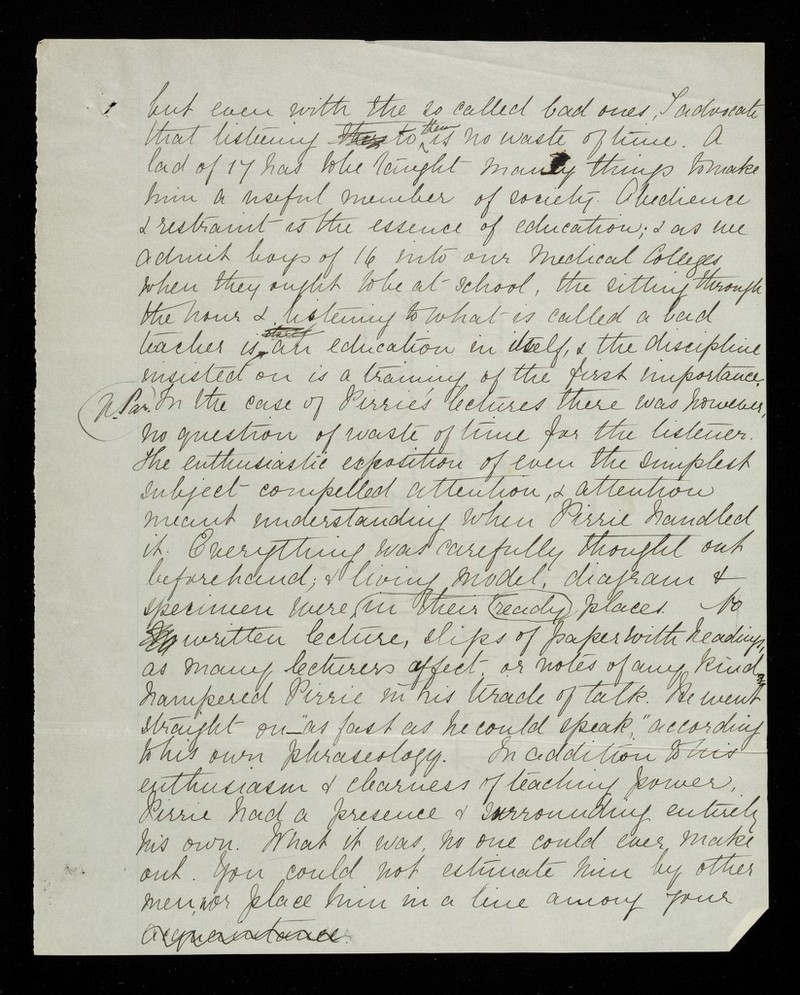 but even with the so called bad ones, I advocate
that listening to them is no waste of time. A
lad of 17 has to be taught many things to make
him a useful member of society. Obedience
& restraint is the essence of education; & as we
admit boys of 16 into our Medical Colleges
when they ought to be at school, the sitting through
the hour & listening to what is called a bad
teacher is an education in itself, & the discipline
insisted on is a training of the first importance.
N. Par. In the case of Pirrie's lectures there was however,
no question of waste of time for the listener.
The enthusiastic exposition of even the simplest
subject compelled attention, & attention
meant understanding when Pirrie handled
it. Everything was carefully thought out
beforehand; & living model, diagram &
specimen were in their ready places. No
written lecture, slips of paper with headings,
as many lecturers affect, or notes of any kind
hampered Pirrie in his tirade of talk. He went
straight on – "as fast as he could speak," according
to his own phraseology. In addition to his
enthusiasm & clearness of teaching power,
Pirrie had a presence & surrounding entirely
his own. What it was, no one could ever make
out. You could not estimate him by other
men, nor place him in a line among your
acquaintance.